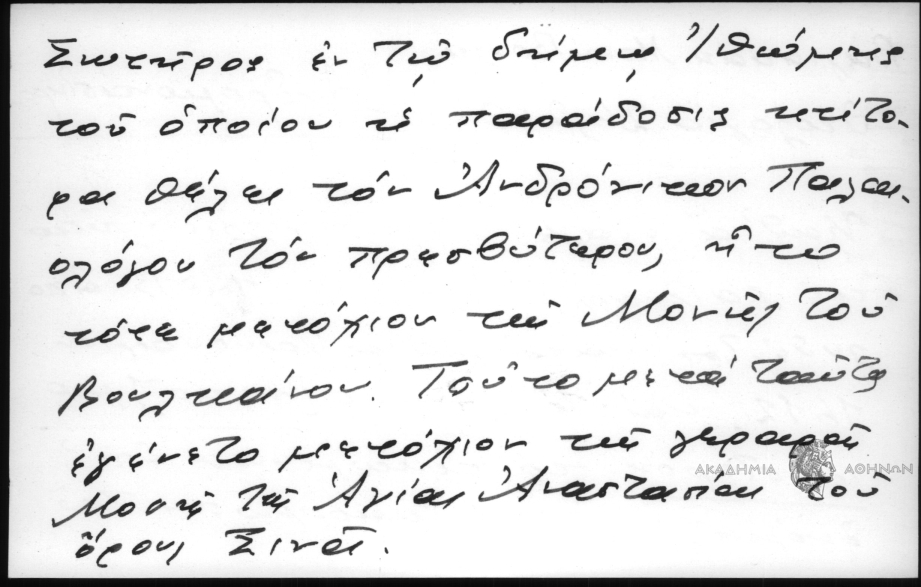 Σωτῆρος ἐν τῷ δήμῳ Ἰθώμης
τοῦ ὁποίου ἡ παράδοσις κτίτο-
ρα θέλει τὸν Ἀνδρόνικον Παλαι-
ολόγον τὸν πρεσβύτερον, ἦτο
τότε μετόχιον τῆς Μονῆς τοῦ
Βουλκάνου. Τοῦτο μετὰ ταῦτα
ἐγένετο μετόχιον τῆς γεραρᾶς
Μονῆς τῆς Ἁγίας Ἀναστασίας τοῦ
ὄρους Σινᾶ.
ΑΚΑΔΗΜΙΑ ΑΘΗΝΩΝ